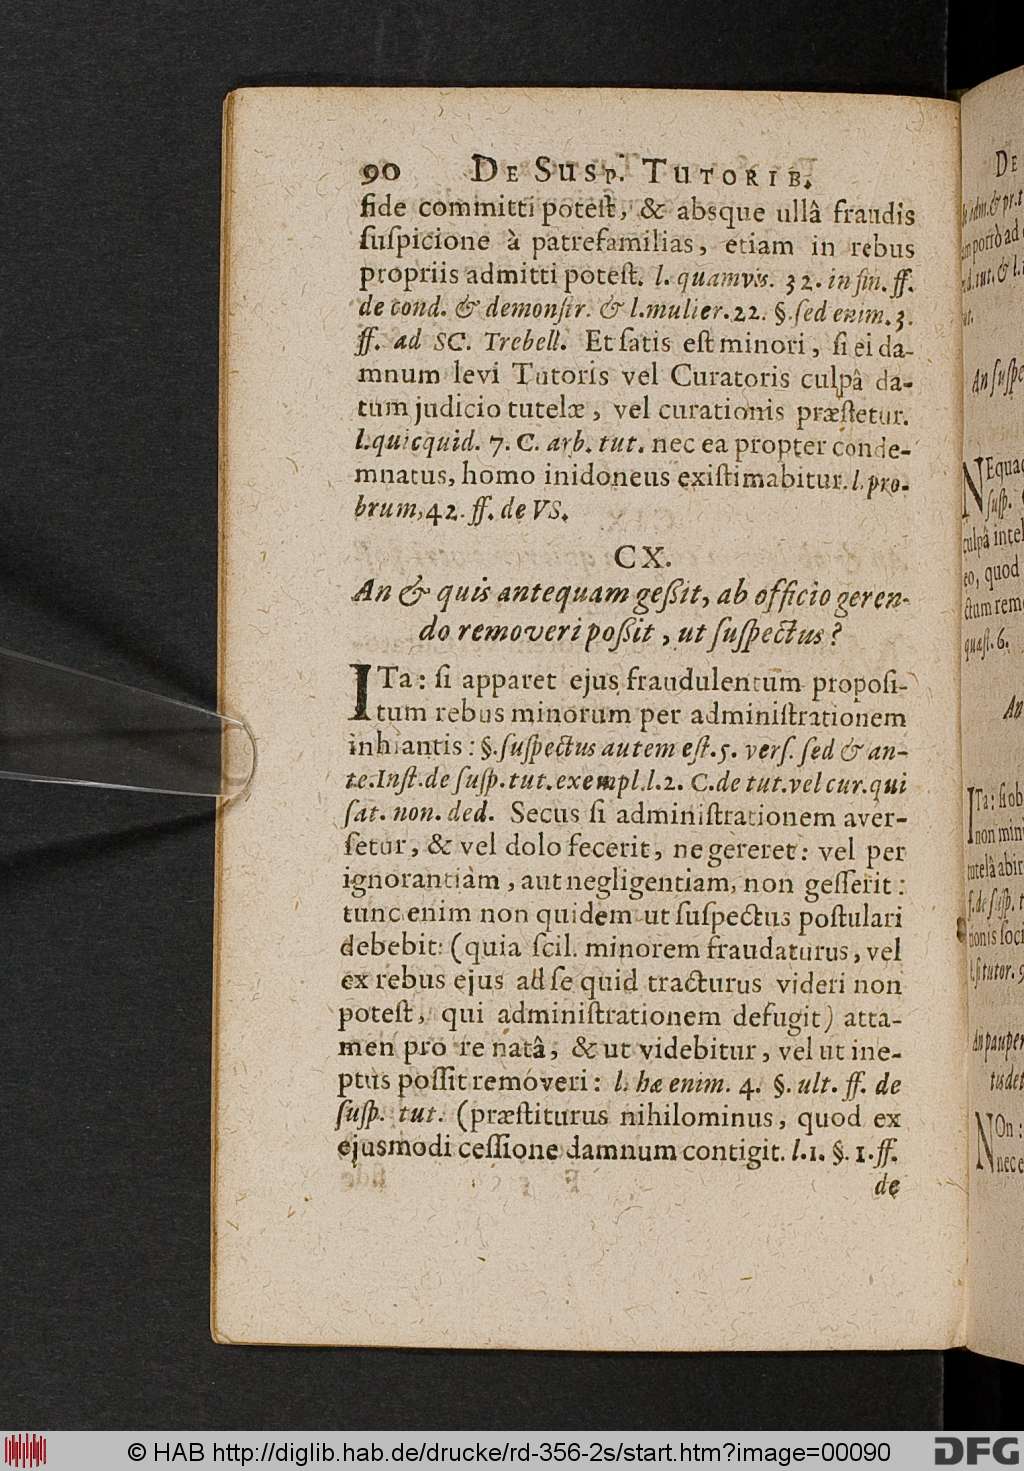 90 De Susp. Tutorib.
fide committi poteſt, & absque ullâ fraudis
ſuſpicione à patrefamilias, etiam in rebus
propriis admitti poteſt. l. quamvis. 32. in fin. ff.
de cond. & demonſtr. & l. mulier. 22. §. ſed enim. 3.
ff. ad SC. Trebell. Et ſatis eſt minori, ſi ei da-
mnum levi Tutoris vel Curatoris culpâ da-
tum judicio tutelæ, vel curationis præſtetur.
l. quicquid. 7. C. arb. tut. nec ea propter conde-
mnatus, homo inidoneus exiſtimabitur. l. pro-
brum, 42. ff. de VS.
CX.
An & quis antequam geßit, ab officio geren-
do removeri poßit, ut ſuſpectus?
ITa: ſi apparet ejus fraudulentum propoſi-
tum rebus minorum per adminiſtrationem
inhiantis: §. ſuſpectus autem eſt. 5. verſ. ſed & an-
te. Inſt. de ſuſp. tut. exempl. l. 2. C. de tut. vel cur. qui
ſat. non. ded. Secus ſi adminiſtrationem aver-
ſetur, & vel dolo fecerit, ne gereret: vel per
ignorantiam, aut negligentiam, non geſſerit:
tunc enim non quidem ut ſuſpectus poſtulari
debebit: (quia ſcil. minorem fraudaturus, vel
ex rebus ejus ad ſe quid tracturus videri non
poteſt, qui adminiſtrationem defugit) atta-
men pro re natâ, & ut videbitur, vel ut ine-
ptus poſſit removeri: l. hæ enim. 4. §. ult. ff. de
ſuſp. tut. (præſtiturus nihilominus, quod ex
ejusmodi ceſſione damnum contigit. l. 1. §. 1. ff.
de
De
An ſuſpe
NEquaq
ſuſp.
culpâ intel
eo, quod
ctum remo
quæſt. 6.
An
ITa: ſi ob
non min
tutelâ abir
f. de ſuſp. t
nonis ſoci
l. ſi tutor. 9
An pauper
tus det
NOn:
nec e
© HAB http://diglib.hab.de/drucke/rd-356-2s/start.htm?image=00090
DFG